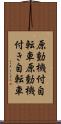 原動機付自
転車原動機
付き自転車